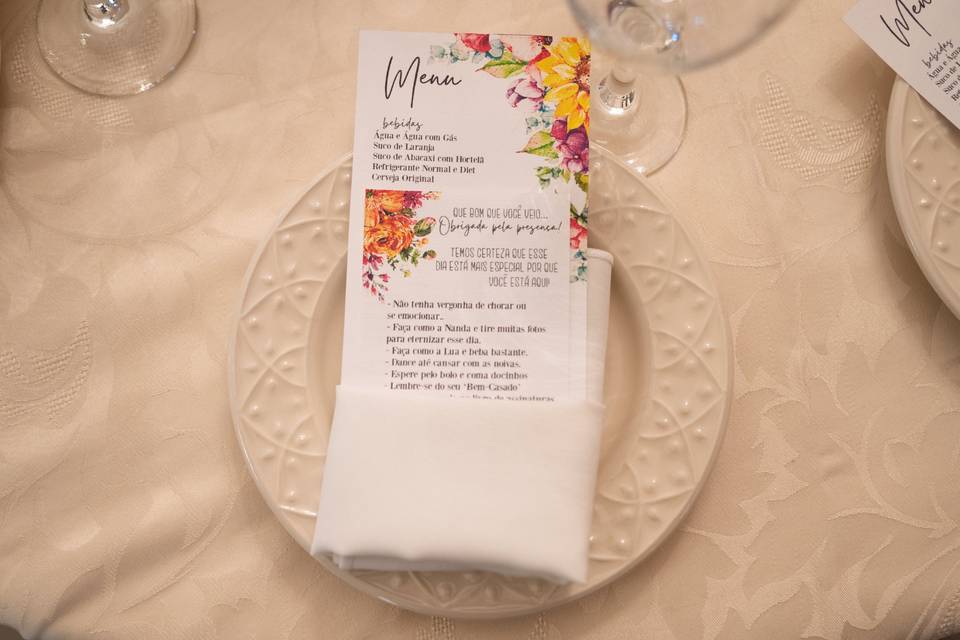 Menu
bebidas
Água e Água com Gás
Suco de Laranja
Suco de Abacaxi com Hortelã
Refrigerante Normal e Diet
Cerveja Original
QUE BOM QUE VOCÊ VEIO...
Obrigada pela presença!
TEMOS CERTEZA QUE ESSE
DIA ESTÁ MAIS ESPECIAL POR QUE
VOCÊ ESTÁ AQUI!
- Não tenha vergonha de chorar ou
se emocionar..
- Faça como a Nanda e tire muitas fotos
para eternizar esse dia.
- Faça como a Lua e beba bastante.
- Dance até cansar com as noivas.
- Espere pelo bolo e coma docinhos
- Lembre-se do seu "Bem-Casado"
livro de assinaturas
Menu
bebidas
Água e Água
Suco de
Suco de
Refri